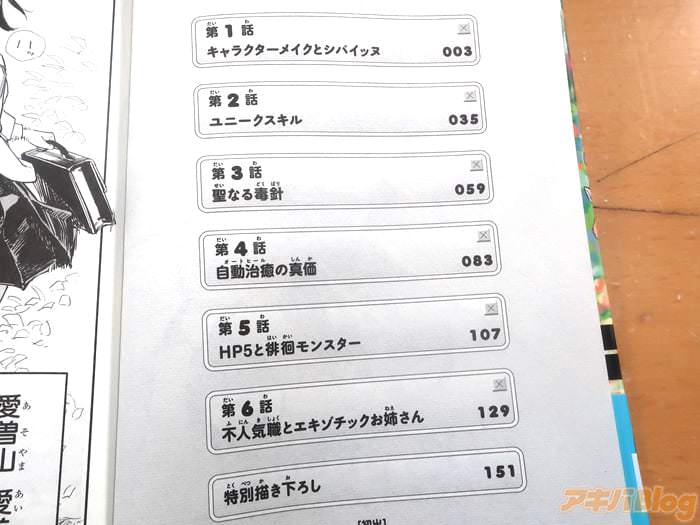 第1話
キャラクターメイクとシバイッヌ 003
第2話
ユニークスキル 035
第3話
聖なる毒針 059
第4話
自動治癒の真価 083
第5話
HP5と徘徊モンスター 107
第6話
不人気職とエキゾチックお姉さん 129
特別描き下ろし 151
愛曽山 愛
アキバBlog